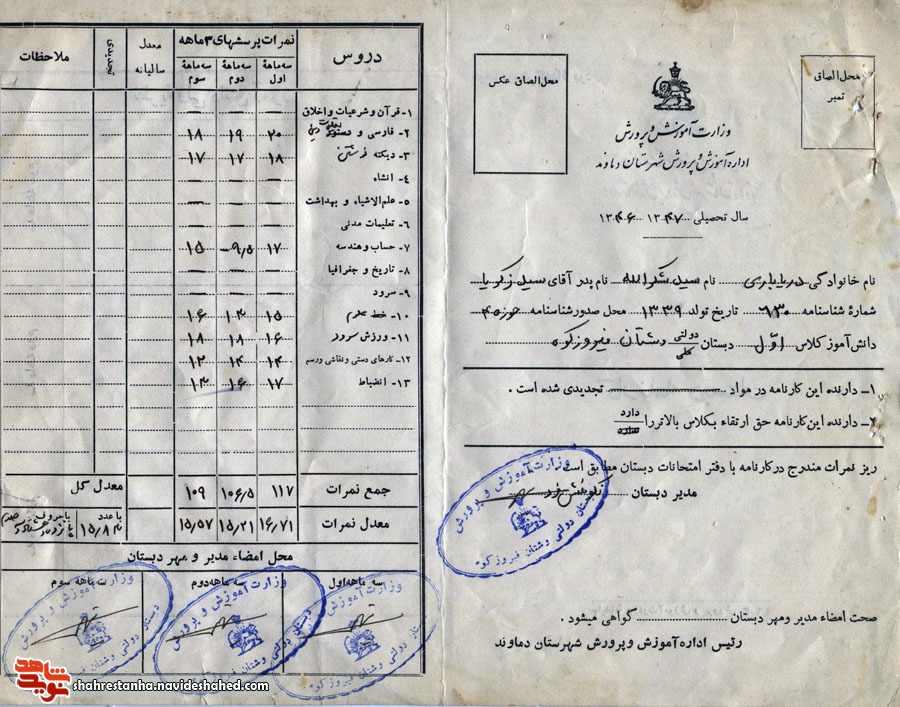 محل الصاق تمبر
محل الصاق عکس
وزارت آموزش و پرورش
اداره آموزش و پرورش شهرستان دماوند
سال تحصیلی ۱۳۴۷ ۱۳۴۶
نام خانوادگی دریاباری نام سید شکرالله نام پدر آقای سید زکریا
شمارهٔ شناسنامه ۶۳۰ تاریخ تولد ۱۳۳۹ محل صدور شناسنامه حوزه ۴
دانش آموز کلاس اول دبستان دولتی وشتان فیروزکوه
۱ـ دارنده این کارنامه در مواد تجدیدی شده است .
۲ـ دارنده این کارنامه حق ارتقاء بکلاس بالاتر را دارد
ریز نمرات مندرج در کارنامه با دفتر امتحانات دبستان مطابق است
مدیر دبستان
وزارت آموزش و پرورش
دبستان دولتی وشتان فیروزکوه
صحت امضاء مدیر و مهر دبستان گواهی میشود .
رئیس اداره آموزش و پرورش شهرستان دماوند
دروس
نمرات پرسشهای ۳ ماهه
سه ماههٔ اول
سه ماههٔ دوم
سه ماههٔ سوم
معدل سالیانه
تجدیدی
ملاحظات
۱- قرآن و شرعیات و اخلاق — — —
۲- فارسی و دستور ۲۰ ۱۹ ۱۸
۳- دیکته ۱۸ ۱۷ ۱۷
۴- انشاء — — —
۵- علم الاشیاء و بهداشت — — —
۶- تعلیمات مدنی — — —
۷- حساب و هندسه ۱۷ ۹٫۵ ۱۵
۸- تاریخ و جغرافیا — — —
۹- سرود — — —
۱۰- خط ۱۵ ۱۳ ۱۶
۱۱- ورزش سرود ۱۶ ۱۸ ۱۸
۱۲- کارهای دستی و نقاشی و رسم ۱۴ ۱۴ ۱۲
۱۳- انضباط ۱۷ ۱۶ ۱۳
جمع نمرات ۱۱۷ ۱۰۶/۵ ۱۰۹ معدل کل
معدل نمرات ۱۶٫۷۱ ۱۵٫۲۱ ۱۵٫۵۷ با عدد ۱۵٫۸۳ با حروف
محل امضاء مدیر و مهر دبستان
سه ماهه اول
سه ماهه دوم
سه ماهه سوم
وزارت آموزش و پرورش
دبستان دولتی وشتان فیروزکوه
وزارت آموزش و پرورش
دبستان دولتی وشتان فیروزکوه
وزارت آموزش و پرورش
دبستان دولتی وشتان
نوید شاهد
shahrestanha.navideshahed.com